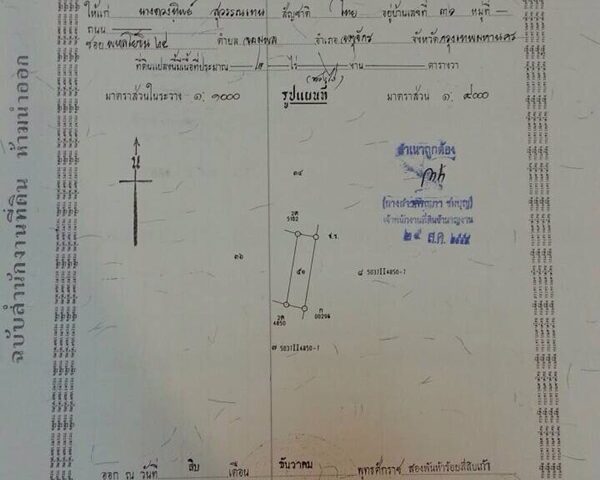 ให้แก่ นางดวงทิพย์ สุวรรณเทน สัญชาติ ไทย อยู่บ้านเลขที่ ๓๑ หมู่ที่ -
ถนน
ซอย พหลโยธิน ๒๔ ตำบล จอมพล อำเภอ จตุจักร จังหวัด กรุงเทพมหานคร
ที่ดินแปลงนี้มีเนื้อที่ประมาณ ไร่ งาน ตารางวา
มาตราส่วนในระวาง ๑: ๑๐๐๐ รูปแผนที่ มาตราส่วน ๑: ๔๐๐๐
น
สำเนาถูกต้อง
เจ้าพนักงานที่ดินชำนาญงาน
๒๔ ๒๕๕๕
๓๔
5102
๓๖ ๕๑ ๘ 5037II4850-7
4850 00294
๗ 5037II4850-7
ออก ณ วันที่ สิบ เดือน ธันวาคม พุทธศักราช สองพันห้าร้อยสี่สิบเก้า
ฉบับสำนักงานที่ดิน ห้ามนำออก